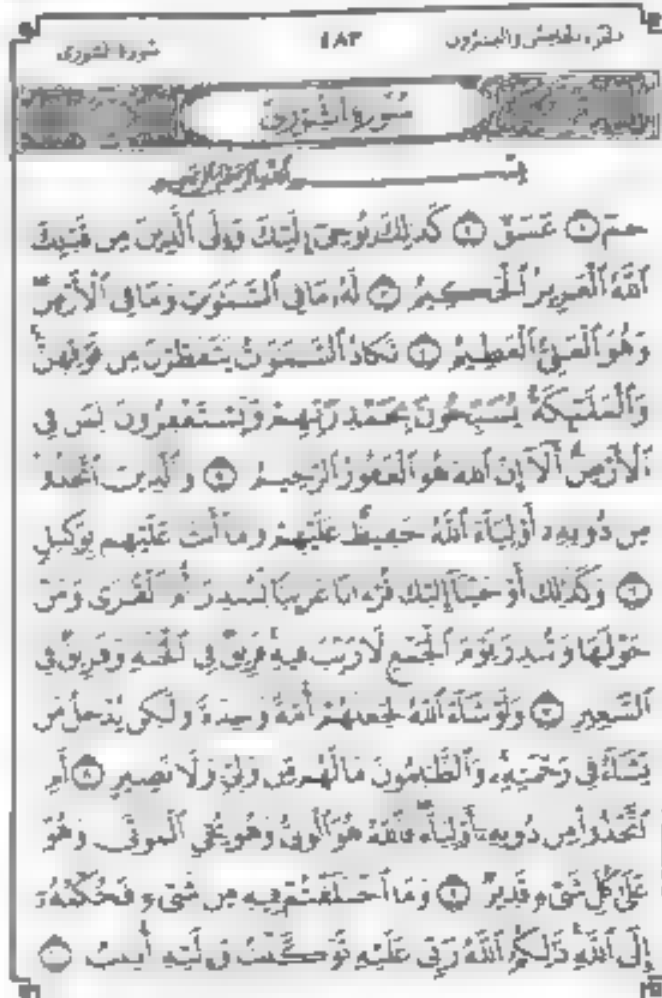 سُورَةُ الشُّورَىٰ ٤٨٣ الجزء الخامس والعشرون
سُورَةُ الشُّورَىٰ
بِسْمِ اللَّهِ الرَّحْمَٰنِ الرَّحِيمِ
حمٓ ١ عٓسٓقٓ ٢ كَذَٰلِكَ يُوحِىٓ إِلَيْكَ وَإِلَى ٱلَّذِينَ مِن قَبْلِكَ
ٱللَّهُ ٱلْعَزِيزُ ٱلْحَكِيمُ ٣ لَهُۥ مَا فِى ٱلسَّمَٰوَٰتِ وَمَا فِى ٱلْأَرْضِ
وَهُوَ ٱلْعَلِىُّ ٱلْعَظِيمُ ٤ تَكَادُ ٱلسَّمَٰوَٰتُ يَتَفَطَّرْنَ مِن فَوْقِهِنَّ
وَٱلْمَلَٰٓئِكَةُ يُسَبِّحُونَ بِحَمْدِ رَبِّهِمْ وَيَسْتَغْفِرُونَ لِمَن فِى
ٱلْأَرْضِ أَلَآ إِنَّ ٱللَّهَ هُوَ ٱلْغَفُورُ ٱلرَّحِيمُ ٥ وَٱلَّذِينَ ٱتَّخَذُوا۟
مِن دُونِهِۦٓ أَوْلِيَآءَ ٱللَّهُ حَفِيظٌ عَلَيْهِمْ وَمَآ أَنتَ عَلَيْهِم بِوَكِيلٍ
٦ وَكَذَٰلِكَ أَوْحَيْنَآ إِلَيْكَ قُرْءَانًا عَرَبِيًّا لِّتُنذِرَ أُمَّ ٱلْقُرَىٰ وَمَنْ
حَوْلَهَا وَتُنذِرَ يَوْمَ ٱلْجَمْعِ لَا رَيْبَ فِيهِ فَرِيقٌ فِى ٱلْجَنَّةِ وَفَرِيقٌ فِى
ٱلسَّعِيرِ ٧ وَلَوْ شَآءَ ٱللَّهُ لَجَعَلَهُمْ أُمَّةً وَٰحِدَةً وَلَٰكِن يُدْخِلُ مَن
يَشَآءُ فِى رَحْمَتِهِۦ وَٱلظَّٰلِمُونَ مَا لَهُم مِّن وَلِىٍّ وَلَا نَصِيرٍ ٨ أَمِ
ٱتَّخَذُوا۟ مِن دُونِهِۦٓ أَوْلِيَآءَ فَٱللَّهُ هُوَ ٱلْوَلِىُّ وَهُوَ يُحْىِ ٱلْمَوْتَىٰ وَهُوَ
عَلَىٰ كُلِّ شَىْءٍ قَدِيرٌ ٩ وَمَا ٱخْتَلَفْتُمْ فِيهِ مِن شَىْءٍ فَحُكْمُهُۥٓ
إِلَى ٱللَّهِ ذَٰلِكُمُ ٱللَّهُ رَبِّى عَلَيْهِ تَوَكَّلْتُ وَإِلَيْهِ أُنِيبُ ١٠